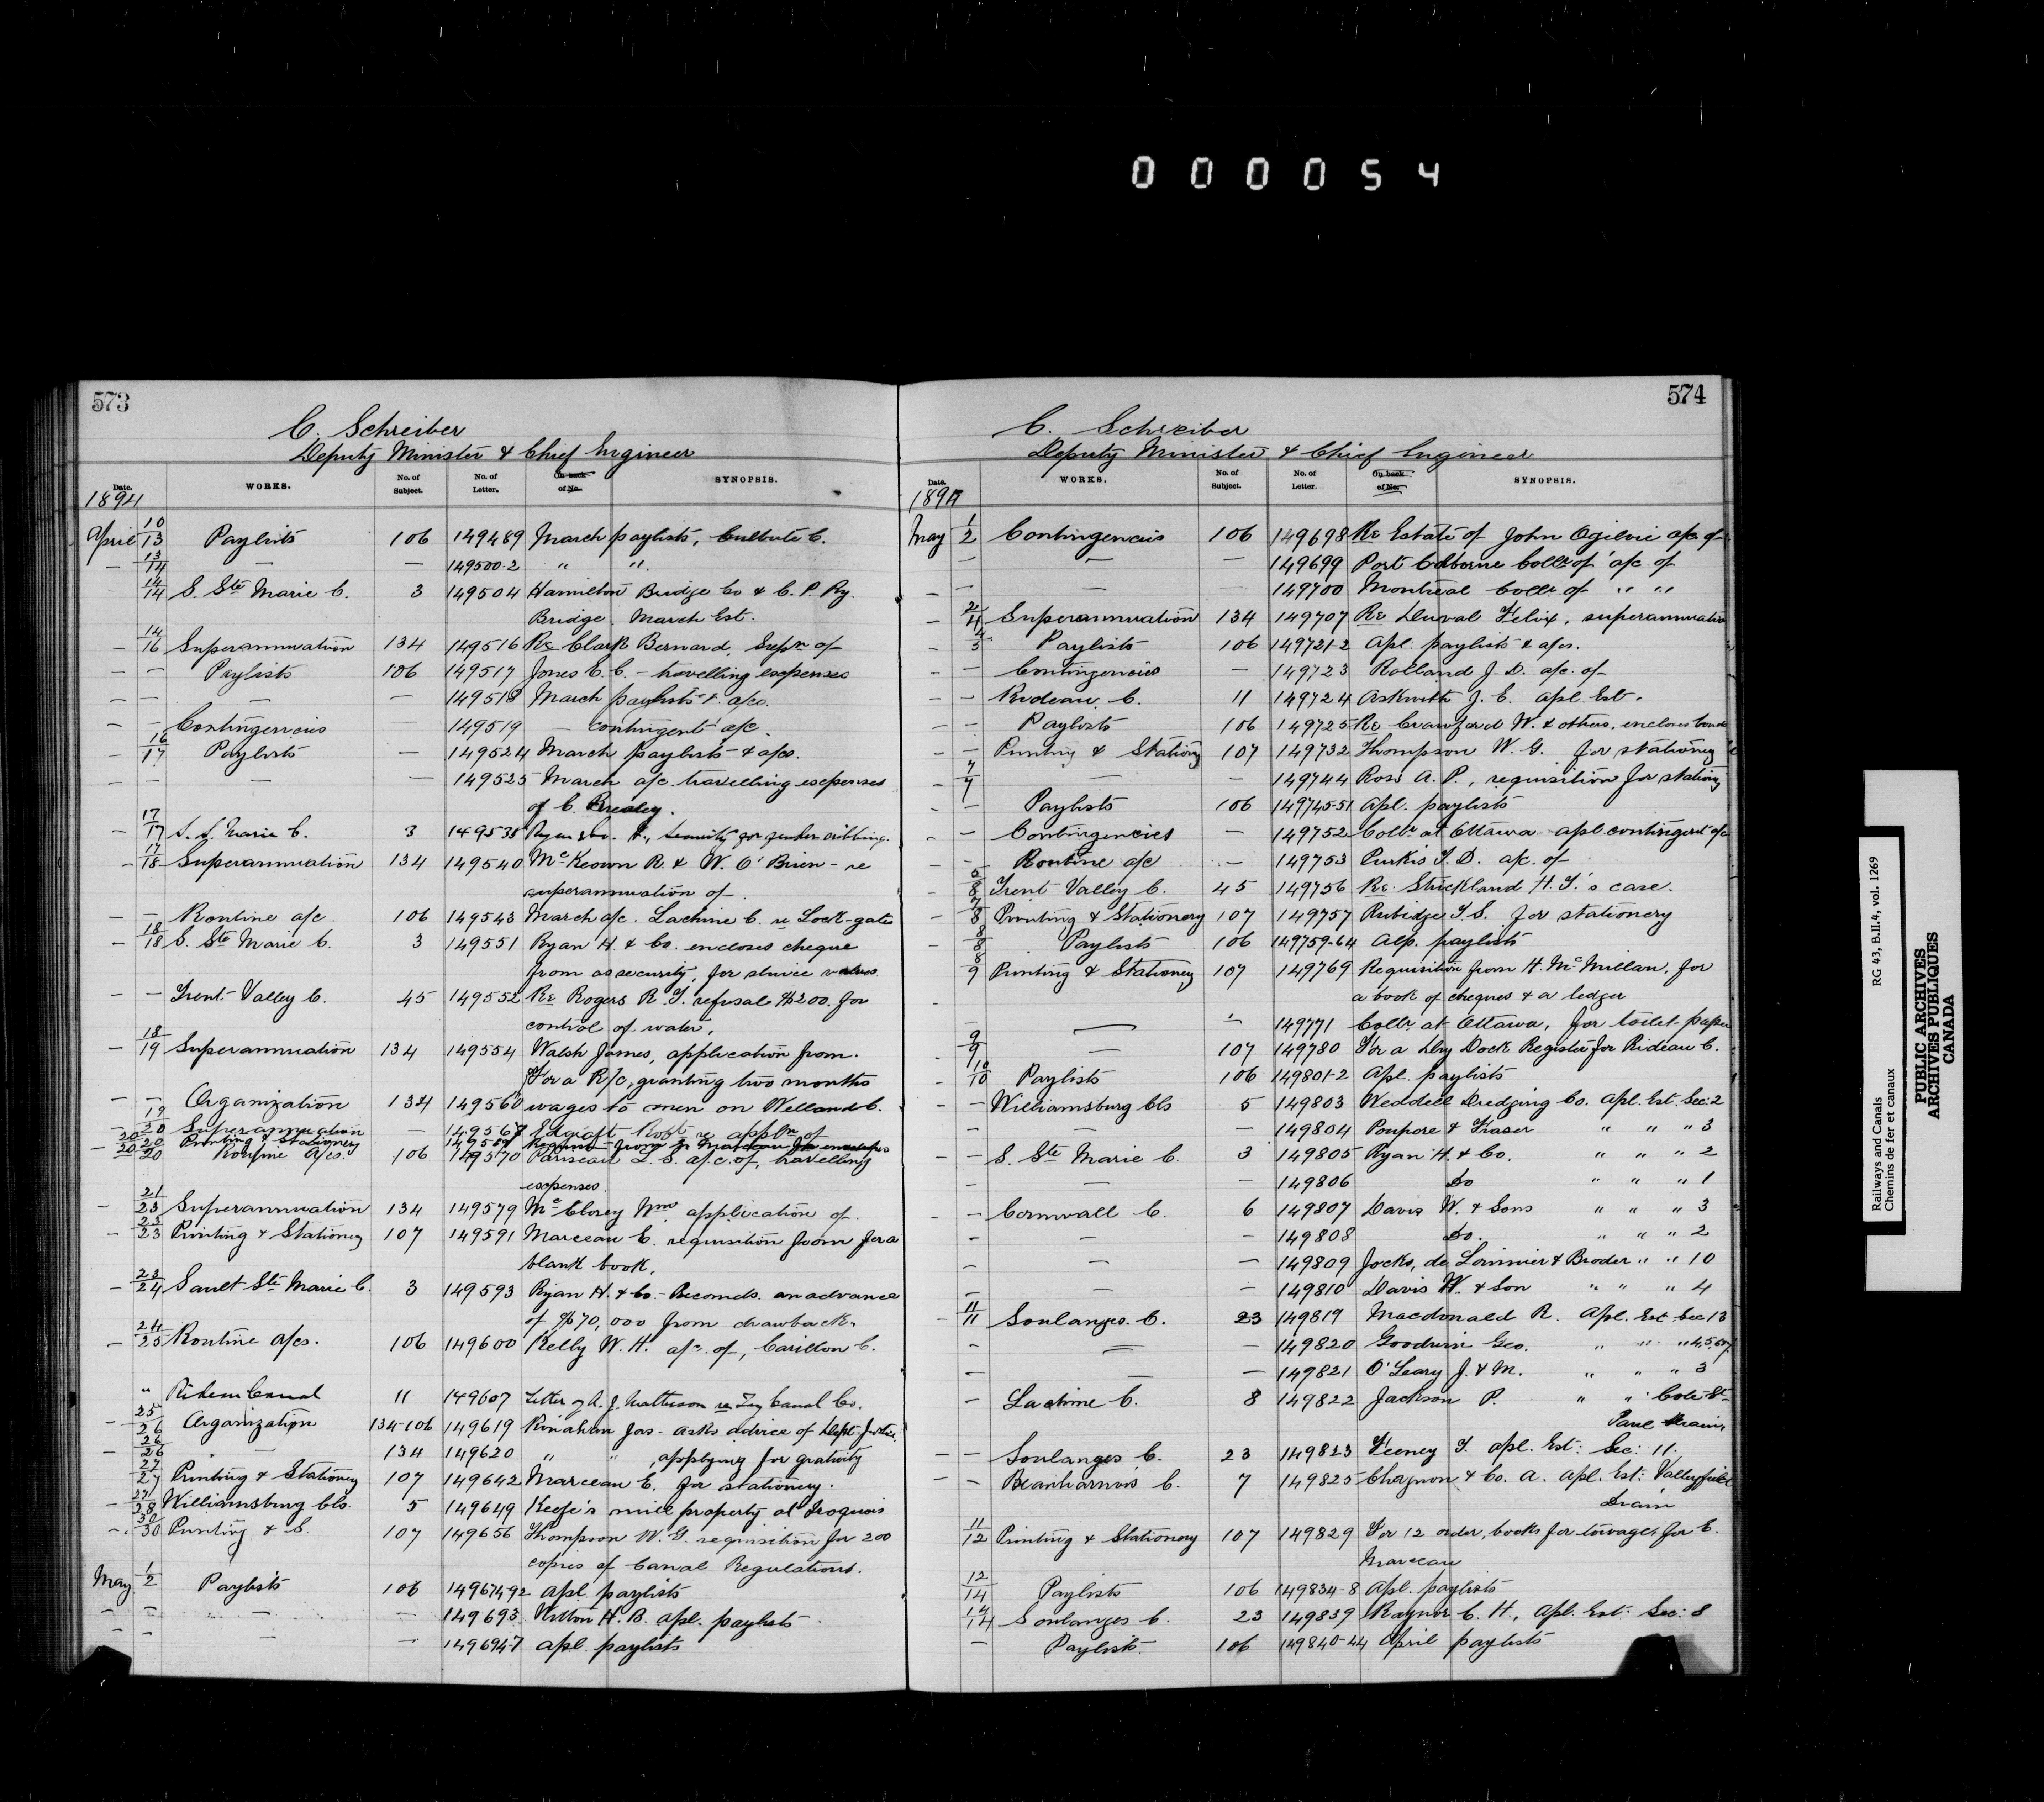 000054
573
C. Schreiber
Deputy Minister & Chief Engineer
Date. WORKS. No. of Subject. No. of Letter. On back of No. SYNOPSIS.
1894
April 10/13 Paylists 106 149489 March paylists, Culbute C.
— 13/14 — — 149500-2 " "
14/14 S. Ste Marie C. 3 149504 Hamilton Bridge Co & C. P. Ry.
Bridge, March Est.
— 14/16 Superannuation 134 149516 Re Clark Bernard, Supn of
— — Paylists 106 149517 Jones E. C. - travelling expenses
— — — — 149518 March paylists & a/cs.
— — Contingencies 149519 — contingent a/c.
— 16/17 Paylists — 149524 March paylists & a/cs.
— — — — 149525 March a/c travelling expenses
of C.
— 17/17 S. S. Marie C. 3 149535 Ryan & Co. H., security for cribbing.
— 17/18 Superannuation 134 149540 McKeown R. & W. O'Brien - re
superannuation of
— — Routine a/c. 106 149543 March a/c. Lachine C. re Lock-gates
— 18/18 S. Ste Marie C. 3 149551 Ryan H. & Co. encloses cheque
from as security, for sluice valves
— — Trent Valley C. 45 149552 Re Rogers R. T. refusal $200. for
control of water.
— 18/19 Superannuation 134 149554 Walsh James, application from.
For a R/C, granting two months
— — Organization 134 149560 wages to men on Welland C.
— 19/20 Superannuation — 149567 Robt re appln of
20/20 Printing & Stationery
— 20/20 Routine A/cs. 106 149570 Pariseau L. S. a/c. of, travelling
expenses.
— 21/23 Superannuation 134 149579 McClorey Wm application of
— 23/23 Printing & Stationery 107 149591 Marceau E. requisition from for a
blank book.
— 23/24 Sault Ste Marie C. 3 149593 Ryan H. & Co. - Recomds. an advance
of $70,000 from drawback.
— 24/25 Routine a/cs. 106 149600 Kelly W. H. a/c. of, Carillon C.
" Rideau Canal 11 149607 Letter of A. J. Matheson re Tay Canal Co.
— 25/26 Organization 134-106 149619 Kinahan Jas - asks advice of Dept. Justice.
— 26/26 — 134 149620 " " , applying for gratuity
— 27/27 Printing & Stationery 107 149642 Marceau E. for stationery.
— 27/28 Williamsburg Cls. 5 149649 Keefe's mill property at Iroquois
— 30/30 Printing & S. 107 149656 Thompson W. G. requisition for 200
copies of Canal Regulations.
May 1/2 Paylists 106 149674-92 Apl. paylists
— — — — 149693 Witton H. B. apl. paylists
— — — — 149694-7 Apl. paylists
574
C. Schreiber
Deputy Minister & Chief Engineer
Date. WORKS. No. of Subject. No. of Letter. On back of No. SYNOPSIS.
1894
May 1/2 Contingencies 106 149698 Re Estate of John Ogilvie a/c of
— — — — 149699 Port Colborne Collr of a/c of
— — — 149700 Montreal Collr of " "
— 2/4 Superannuation 134 149707 Re Duval Felix, superannuation
— 4/5 Paylists 106 149721-2 Apl. paylists & a/cs.
— Contingencies — 149723 Rolland J. D. a/c. of
— — Rideau C. 11 149724 Askwith J. E. apl. Est.
— — Paylists 106 149725 Re Crawford W. & others, encloses bonds
— — Printing & Stationy 107 149732 Thompson W. G. for stationery
— 7/7 — — 149744 Ross A. P., requisition for stationy
— — Paylists 106 149745-51 Apl. paylists
— — Contingencies — 149752 Collr at Ottawa apl. contingent a/c
— Routine a/c — 149753 Purkis I. D. a/c. of
— 5/8 Trent Valley C. 45 149756 Re Strickland H. T.'s case.
— 7/8 Printing & Stationery 107 149757 Rubidge T. S. for stationery
— 8/8 Paylists 106 149759-64 Alp. paylists
8/9 Printing & Stationery 107 149769 Requisition from H. McMillan, for
a book of cheques & a ledger
— — — 149771 Collr at Ottawa, for toilet-paper
— 9/9 — 107 149780 For a Dry Dock Register for Rideau C.
— 10/10 Paylists 106 149801-2 Apl. paylists
— — Williamsburg Cls 5 149803 Weddell Dredging Co. Apl. Est. Sec: 2
— — — 149804 Poupore & Fraser " " " 3
— — S. Ste Marie C. 3 149805 Ryan H. & Co. " " " 2
— — — 149806 Do " " " 1
— — Cornwall C. 6 149807 Davis W. & Sons " " " 3
— — — 149808 Do. " " " 2
— — — 149809 Jocks, de Lorimier & Broder " " 10
— — — 149810 Davis W. & Son " " " 4
— 11/11 Soulanges C. 23 149819 Macdonald R. Apl. Est Sec 13
— — — 149820 Goodwin Geo. " " " 4,5,6&7.
— — — 149821 O'Leary J. & M. " " " 3
— Lachine C. 8 149822 Jackson P. " " Cote St-
Paul drain.
— — Soulanges C. 23 149823 Feeney T. apl. Est: Sec: 11.
— — Beauharnois C. 7 149825 Chagnon & Co. A. Apl. Est: Valleyfield
Drain
11/12 Printing & Stationery 107 149829 For 12 order, books for towage, for E.
Marceau
12/14 Paylists 106 149834-8 Apl. paylists
14/14 Soulanges C. 23 149839 Raynor C. H., Apl. Est: Sec: 8
— Paylists. 106 149840-44 April paylists
Railways and Canals RG 43, B.II.4, vol. 1269
Chemins de fer et canaux
PUBLIC ARCHIVES
ARCHIVES PUBLIQUES
CANADA